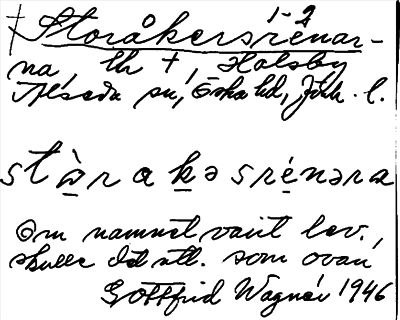 † Storåkersrenar-
na, lh †, Holsby
Alseda sn, Östra hd, Jönk. l.
stòrakəsrénəra
Om namnet varit lev.,
skulle det utt. som ovan
Gottfrid Wagnér 1946